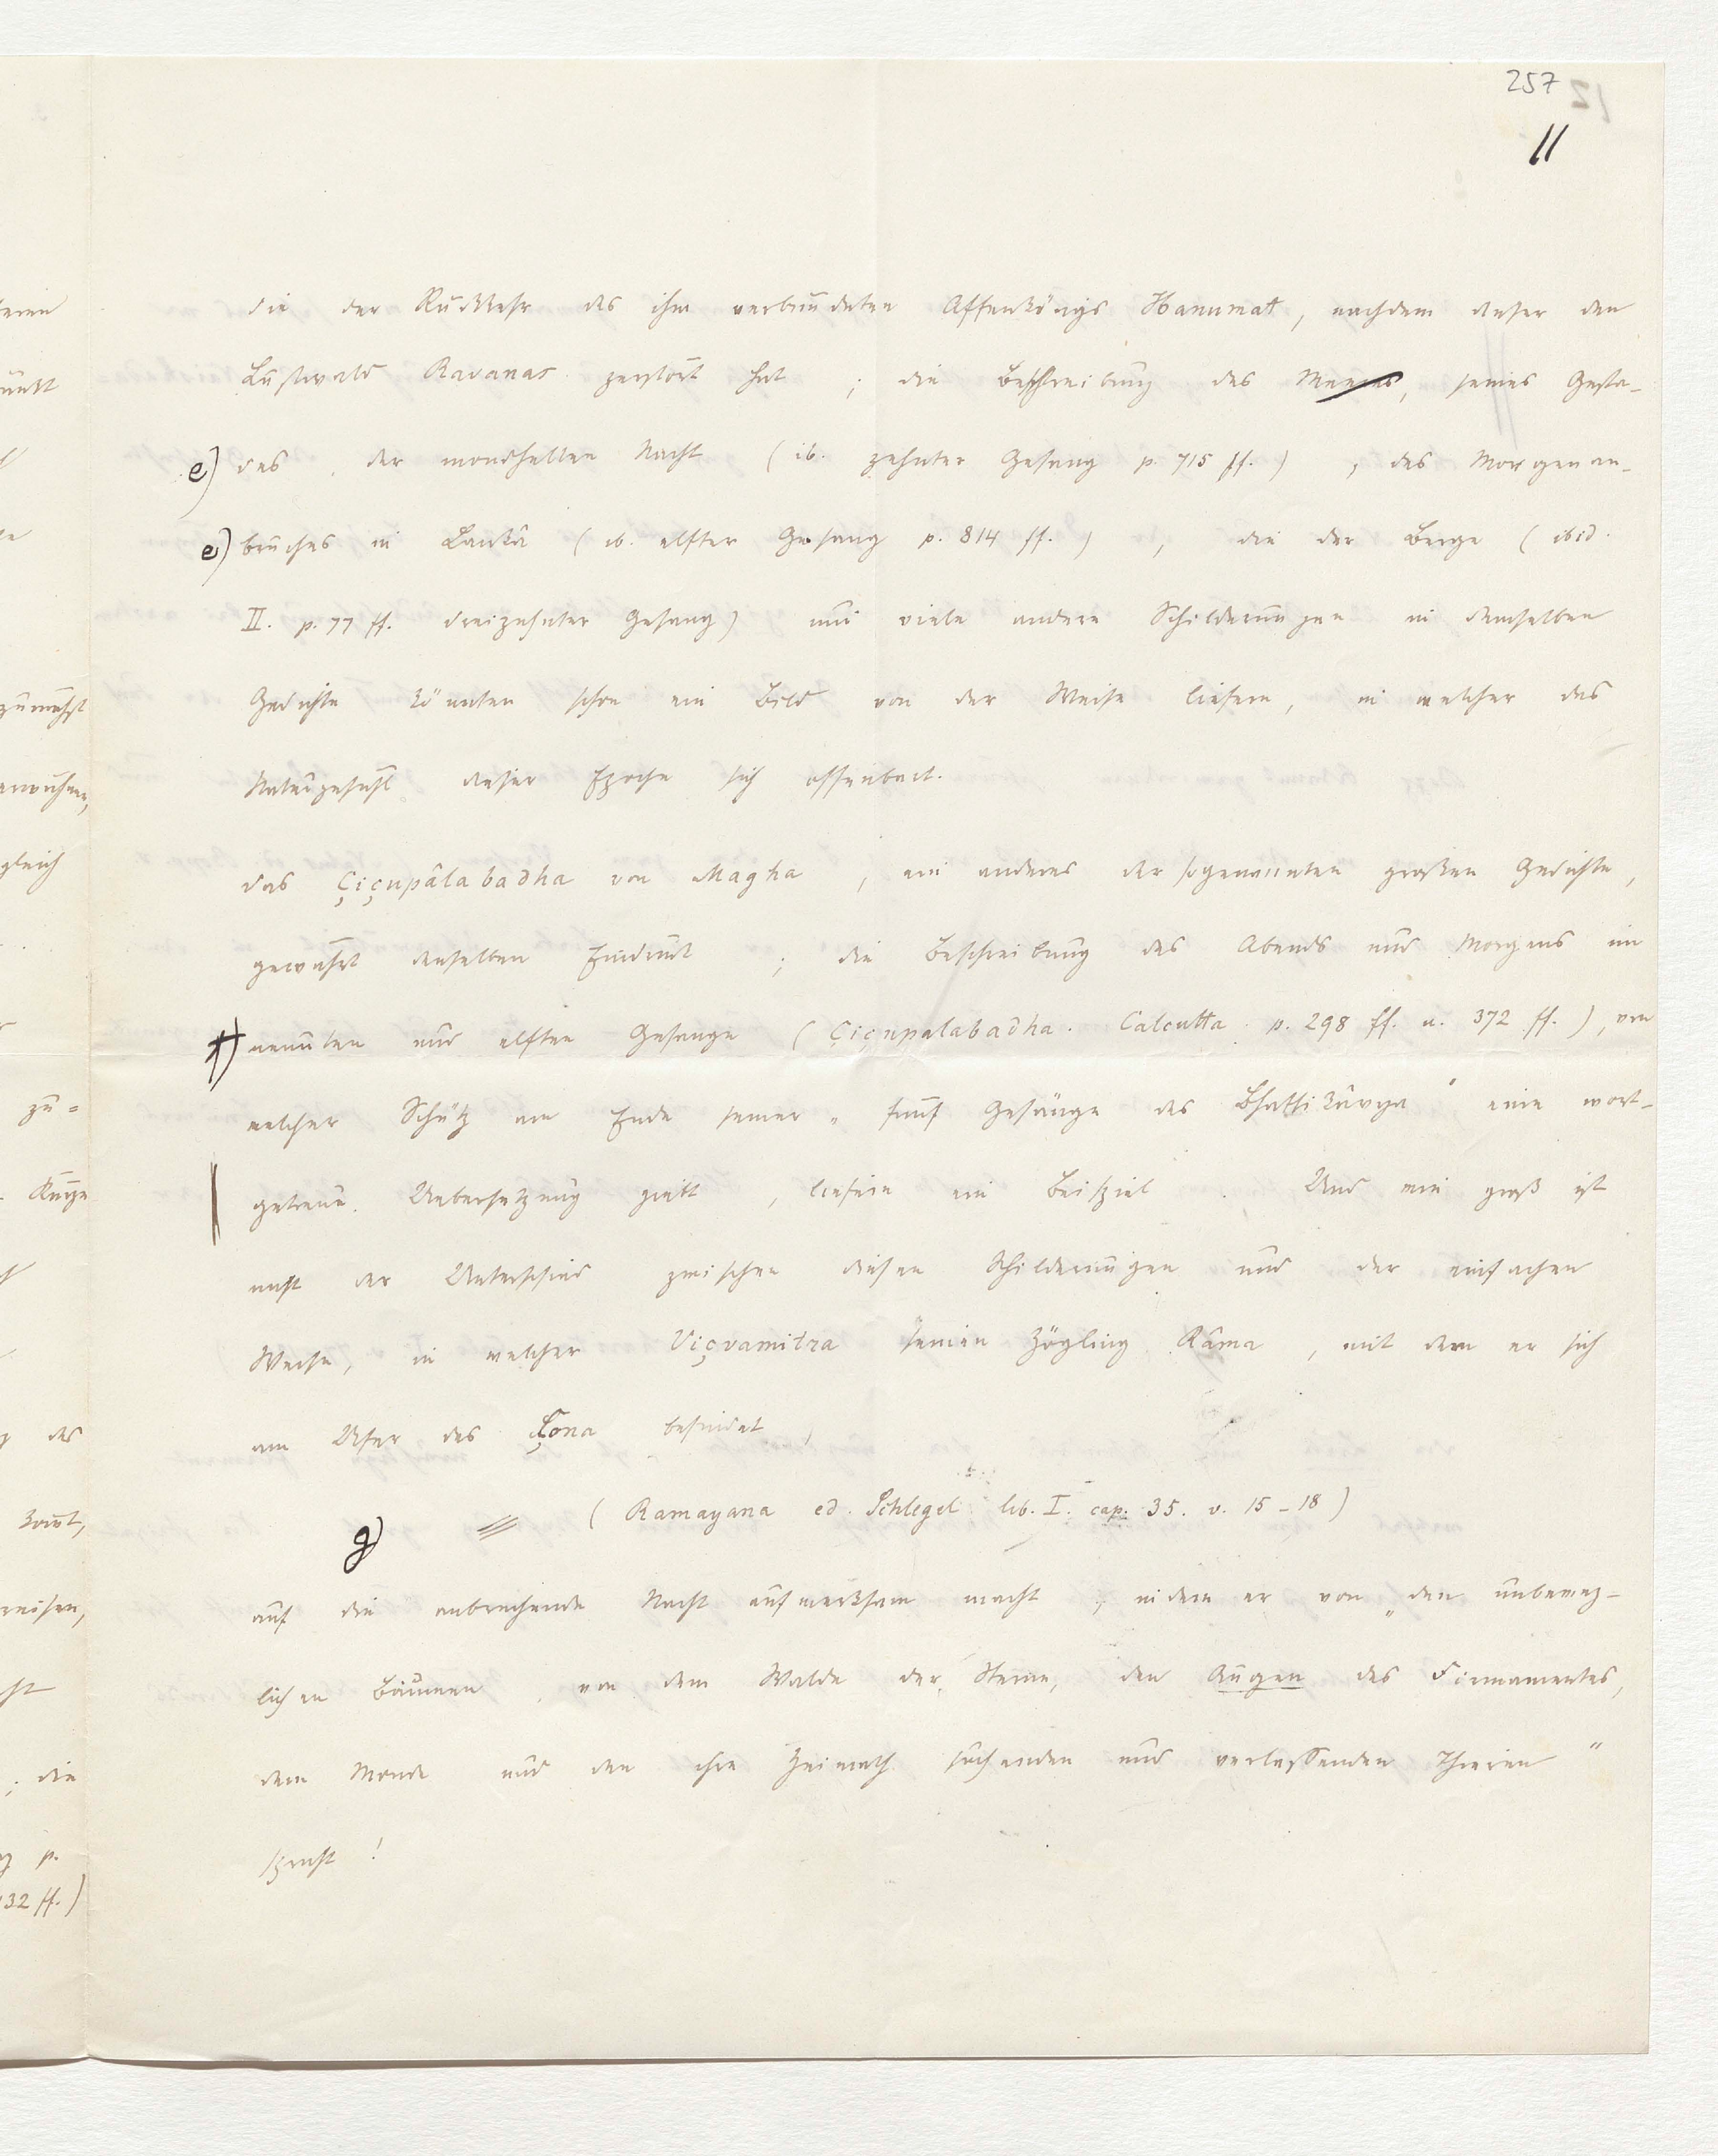 257
11
die der Rückkehr des ihm verbündeten Affenkönigs Hanumat, nachdem dieser den
Lustwald Ravanas zerstört hat ; die Beschreibung des Meeres, seines Gesta-
e) des, der mondhellen Nacht (ib. zehnter Gesang p. 715 ff.) , des Morgenan-
e) bruches in Lankâ (ib. elfter Gesang p. 814 ff.) , die der Berge (ibid.
II. p. 77 ff. dreizehnter Gesang) und viele andere Schilderungen in demselben
Gedichte könnten schon ein Bild von der Weise liefern, in welcher das
Naturgefühl dieser Epoche sich offenbart.
Das Çiçupâlabadha von Magha , ein anderes der sogenannten großen Gedichte,
gewährt denselben Eindruck ; die Beschreibung des Abends und Morgens im
f) neunten und elften Gesange (Çiçupalabadha. Calcutta p. 298 ff. u. 372 ff.), von
welcher Schütz am Ende seiner „ fünf Gesänge des Bhattikâvya “ eine wort-
getreue Uebersetzung giebt , liefern ein Beispiel . Und wie groß ist
nicht der Unterschied zwischen diesen Schilderungen und der einfachen
Weise, in welcher Viçvamitra seinen Zögling Râma , mit dem er sich
am Ufer des Çona befindet ,
g) (Ramayana ed. Schlegel lib. I. cap. 35. v. 15-18)
auf die anbrechende Nacht aufmerksam macht , indem er von „den unbeweg-
lichen Bäumen , von dem Walde der Sterne, den Augen des Firmamentes,
dem Monde und den ihre Heimath suchenden und verlassenden Thieren “
spricht !